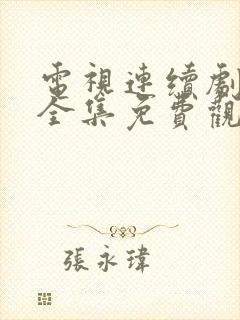 電視連續劇
全集免費觀
張永瑋